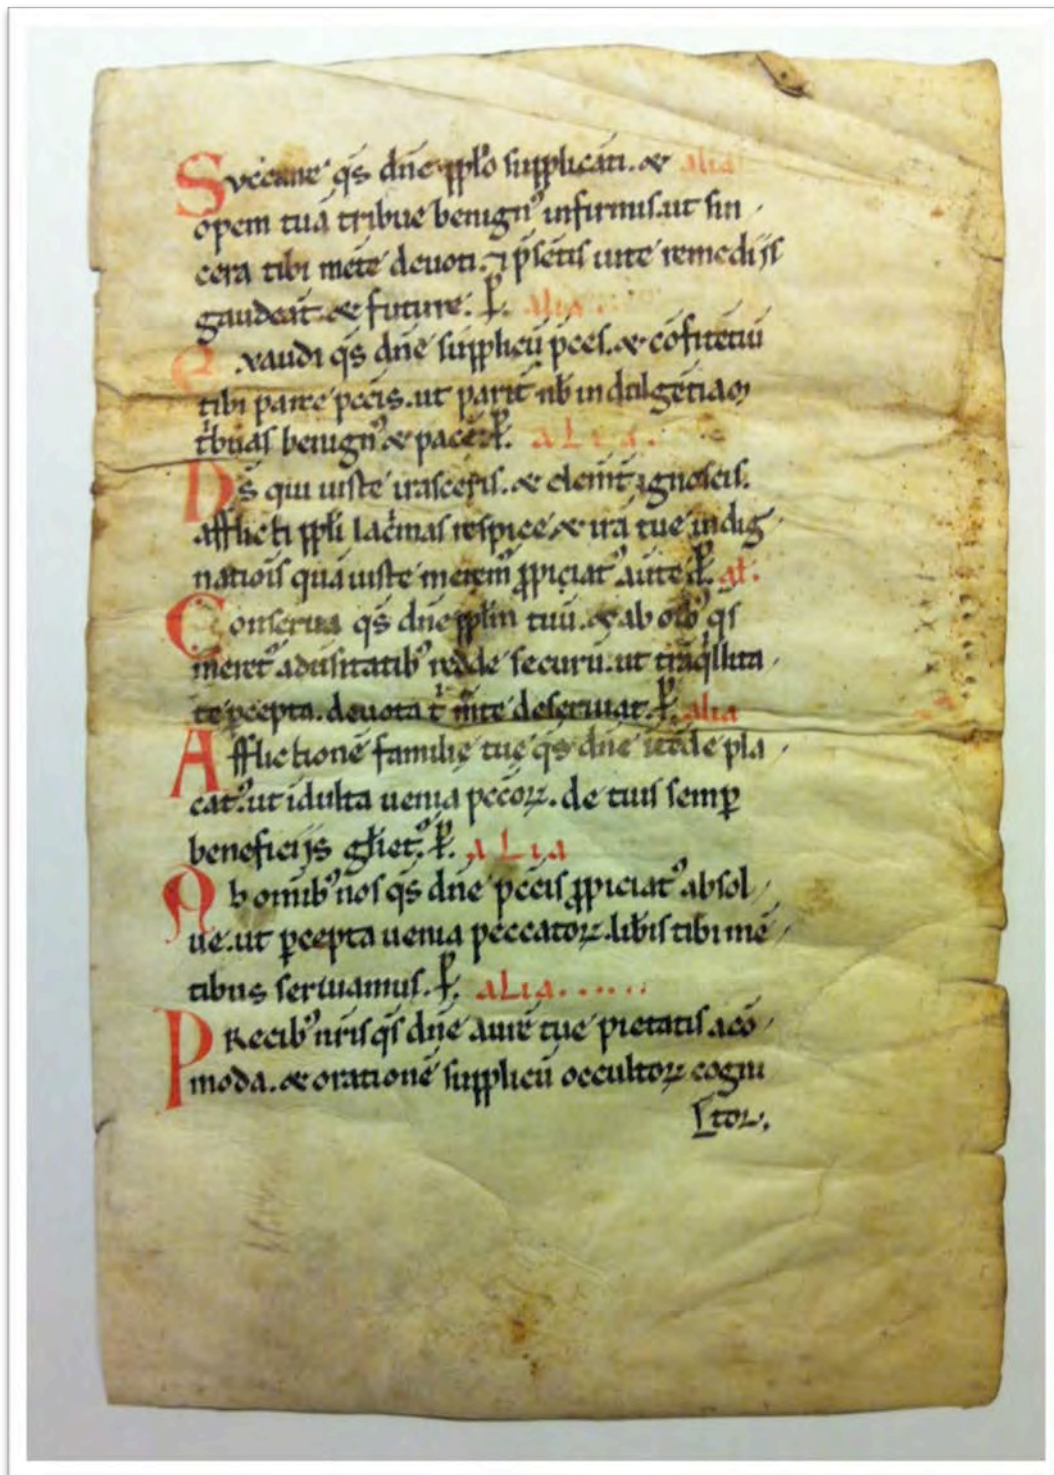 Succurre qs dne pplo supplicati. & alia
opem tuā tribue benign᾿ infirmis. ut sin
cera tibi mēte devoti. ⁊ p̄sētis uite remedijs
gaudeāt & future. P̄. alia
Exaudi q̄s dn̄e supplicū p̄ces. & cōfitētiū
tibi parce pcc̄is. ut parit̄ nb̄ indulgētiam
t̓buas benign᾿ & pacē P̄. alia.
Ds̄ qui iuste irasceris. & clem̄t̄ ignoscis.
afflicti ppl̓i lac̓mas respice & irā tue indig
natiōis quā iuste merem᾿ p̱piciat᾿ auīte P̄. al̓.
Conserua q̄s dn̄e ppl̓m tuū. & ab om̄ib᾿ q̄s
meret᾿ aduisitatib᾿ redde securū. ut trāq̓llita
te p̱cepta. deuota t̓ m̄te deseruiat. P̄. alia
Afflictionē familię tuę q̄s dn̄e ītēde pla
cat᾿. ut īdulta uenia pcc̄oꝝ. de tuis semꝑ
beneficijs gl̓iet᾿. P̄. alia
Ab omib᾿ nos q̄s dn̄e pcc̄is p̱piciat᾿ absol
ue. ut ꝑcepta uenia peccatoꝝ. lib̓is tibi mē
tibus seruiamus. P̄. alia.....
Precib᾿ nr̄is q̄s dn̄e aurē tue pietatis acō
moda. & orationē supplicū occultoꝝ cogni
tor.